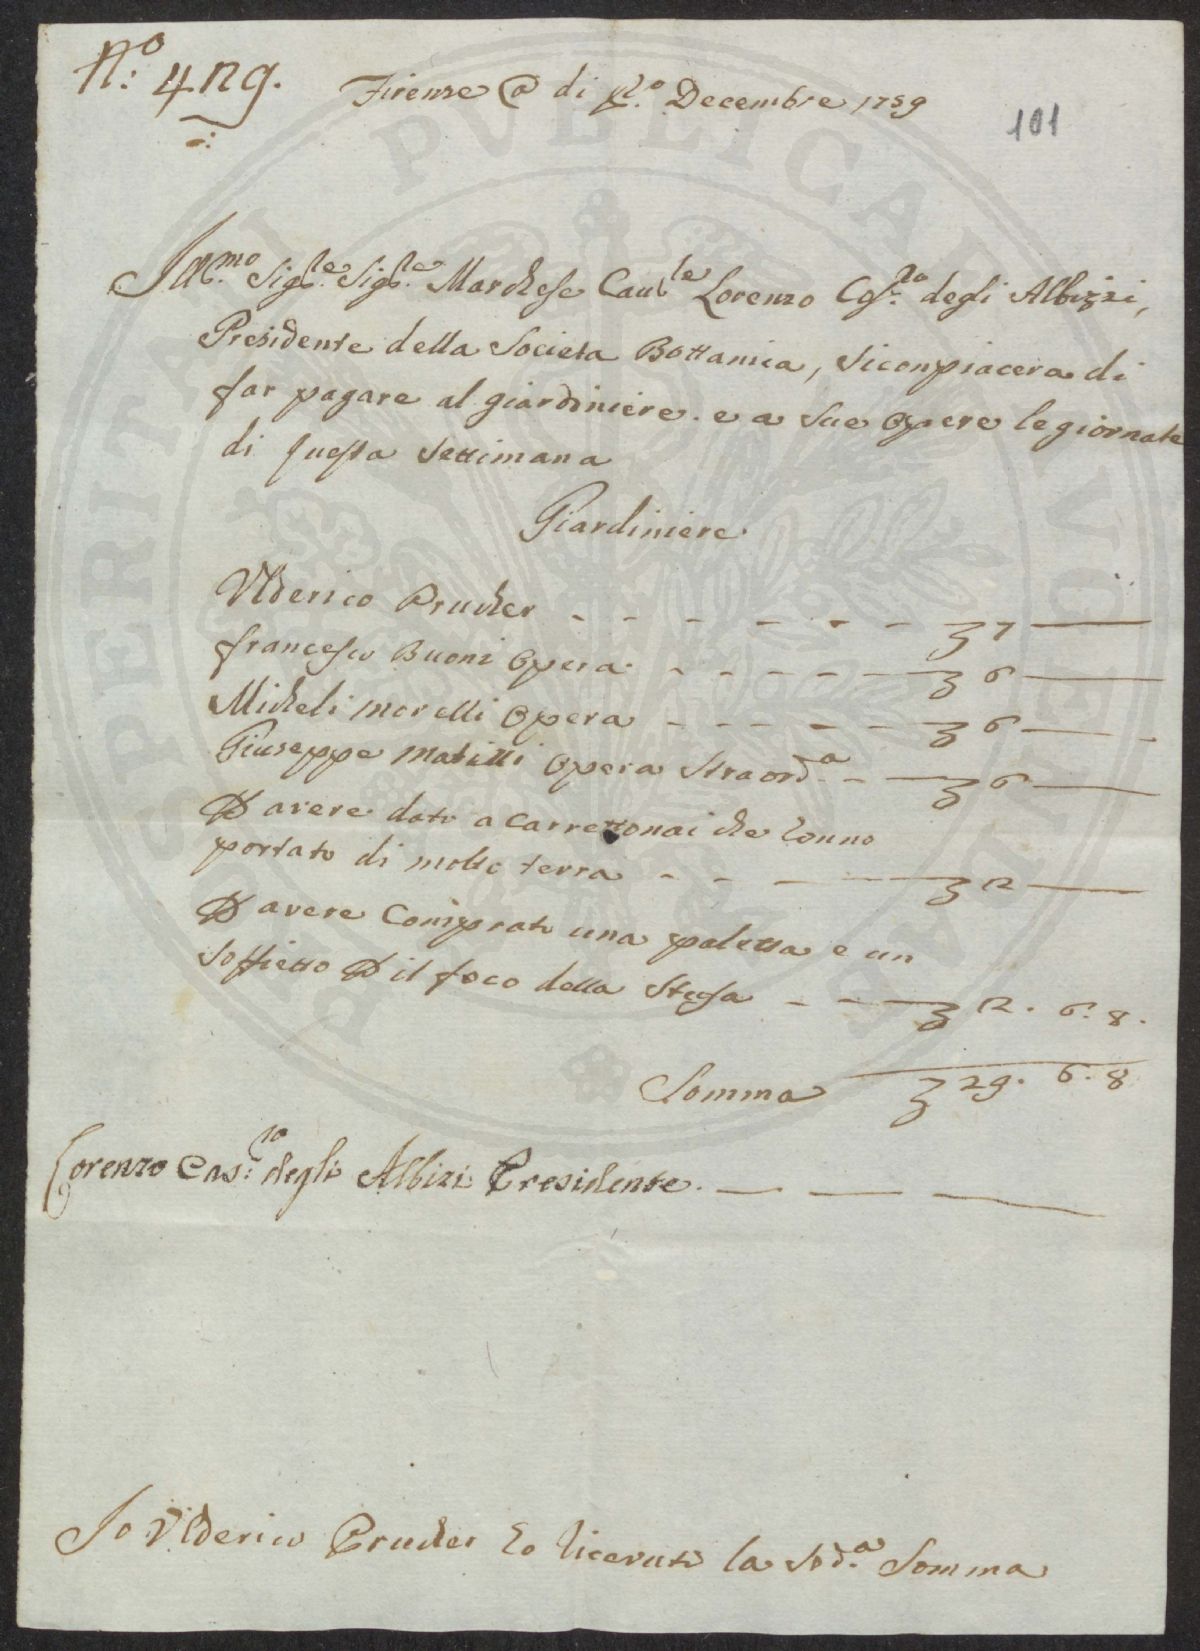 N.o 4 ng.
Firenze @ di p.o Decembre 1759
101
Ill.mo Sig.re Sig.re Marchese Cau.le Lorenzo Cas.no degli Albizzi,
Presidente della Societa Bottanica, si conpiacera di
far pagare al giardiniere. e a sue opere le giornate
di questa settimana
Giardiniere
Ulderico Prucher - - - - - - 7 —
francesco Buoni opera - - - - 6 —
Micheli morelli opera - - - - 6 —
Giuseppe opera straord.a - 6 —
P avere dato a carrettonai che Conno
portato di molto terra - - — 2 —
P avere Comprato una paletta e un
soffietto P il foco della stufa - - 2 . 6 . 8 .
Somma 29 . 6 . 8
Lorenzo Cas.no degli Albizi Presidente. — — —
Io Ulderico Prucher ho riceuuto la sod.a somma
PVBLICAE
PERITATI